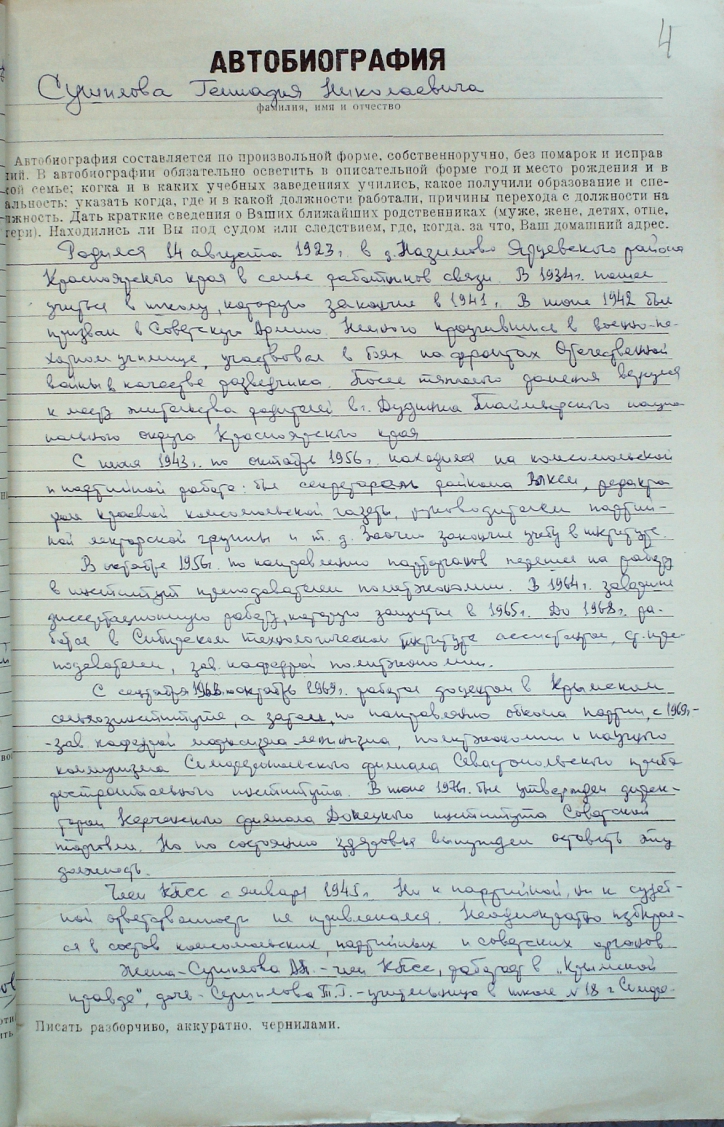 4
АВТОБИОГРАФИЯ
Сушилова Геннадия Николаевича
фамилия, имя и отчество
Автобиография составляется по произвольной форме, собственноручно, без помарок и исправ
ий. В автобиографии обязательно осветить в описательной форме год и место рождения и в
ой семье; когка и в каких учебных заведениях учились, какое получили образование и спе-
альность; указать когда, где и в какой должности работали, причины перехода с должности на
лжность. Дать краткие сведения о Ваших ближайших родственниках (муже, жене, детях, отце,
тери). Находились ли Вы под судом или следствием, где, когда, за что, Ваш домашний адрес.
Родился 14 августа 1923г. в д. Назимово Ярцевского района
Красноярского края в семье работников связи. В 1934г. пошел
учиться в школу, которую закончил в 1941г. В июне 1942 был
призван в Советскую Армию. Немного проучившись в военно-пе-
хотном училище, участвовал в боях на фронтах Отечественной
войны в качестве разведчика. После тяжелого ранения вернулся
к месту жительства родителей в г. Дудинка Таймырского нацио-
нального округа Красноярского края
С июля 1943г. по октябрь 1956г. находился на комсомольской
и партийной работе: был секретарем райкома ВЛКСМ, редакто-
ром краевой комсомольской газеты, руководителем партий-
ной лекторской группы и т. д. Заочно закончил учебу в институте.
В октябре 1956г. по направлению парторганов перешел на работу
в институт преподавателем политэкономии. В 1964г. завершил
диссертационную работу, которую защитил в 1965г. До 1968г. ра-
ботал в Сибирском технологическом институте ассистентом, ст. пре-
подавателем, зав. кафедрой политэкономии.
С сентября 1968 по октябрь 1969г. работал доцентом в Крымском
сельхозинституте, а затем, по направлению обкома партии, с 1969г. -
- зав. кафедрой марксизма-ленинизма, политэкономии и научного
коммунизма Симферопольского филиала Севастопольского прибо-
ростроительного института. В июне 1976г. был утвержден дирек-
тором Керченского филиала Донецкого института Советской
торговли. Но по состоянию здоровья вынужден оставить эту
должность.
Член КПСС с января 1945г. Ни к партийной, ни к судеб-
ной ответственности не привлекался. Неоднократно избирал-
ся в состав комсомольских, партийных и советских органов
Жена - Сушилова - член КПСС, работает в „Крымской
правде", дочь - Сушилова Т.Г. - учительница в школе №18 г. Симфе-
Писать разборчиво, аккуратно, чернилами.